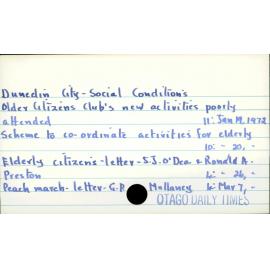 Dunedin City - Social Conditions
Older Citizens Club's new activities poorly
attended 11: Jan 19, 1972
Scheme to co-ordinate activities for elderly
10: - 20, -
Elderly citizens - letter - S.J. O'Dea & Ronald A.
Preston 4: - 26, -
Peach march - letter - G.P. Mullaney 4: Mar 7, -
OTAGO DAILY TIMES